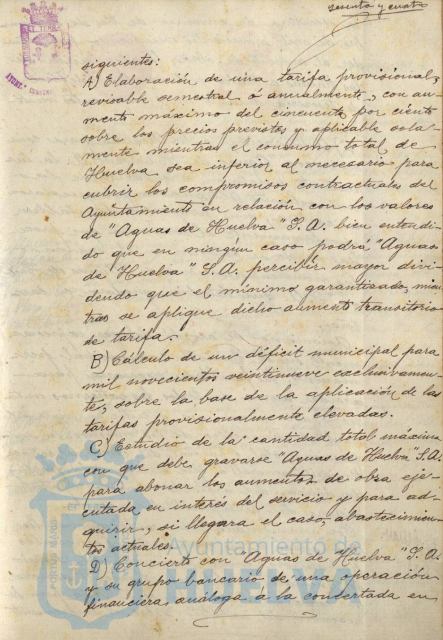 sesenta y cuatro
siguientes:
A) Elaboración de una tarifa provisional,
revisable semestral ó anualmente, con au-
mento máximo del cincuenta por ciento
sobre los precios previstos y aplicable sola-
mente mientras el consumo total de
Huelva sea inferior al necesario para
cubrir los compromisos contractuales del
Ayuntamiento en relación con los valores
de "Aguas de Huelva" S.A. bien entendi-
do que en ningun caso podrá "Aguas
de Huelva" S.A. percibir mayor divi-
dendo que el mínimo garantizado, mien-
tras se aplique dicho aumento transitorio
de tarifa.
B) Cálculo de un déficit municipal para
mil novecientos veintinueve exclusivamen-
te, sobre la base de la aplicación de las
tarifas provisionalmente elevadas.
C) Estudio de la cantidad total máxima
con que debe gravarse "Aguas de Huelva" S.A.
para abonar los aumentos de obra eje-
cutada en interés del servicio y para ad-
quirir, si llegara el caso, abastecimien-
tos actuales.
Ayuntamiento de
D) Concierto con "Aguas de Huelva" S.A.
y su grupo bancario de una operación
financiera análoga á la concertada en
HUELVA